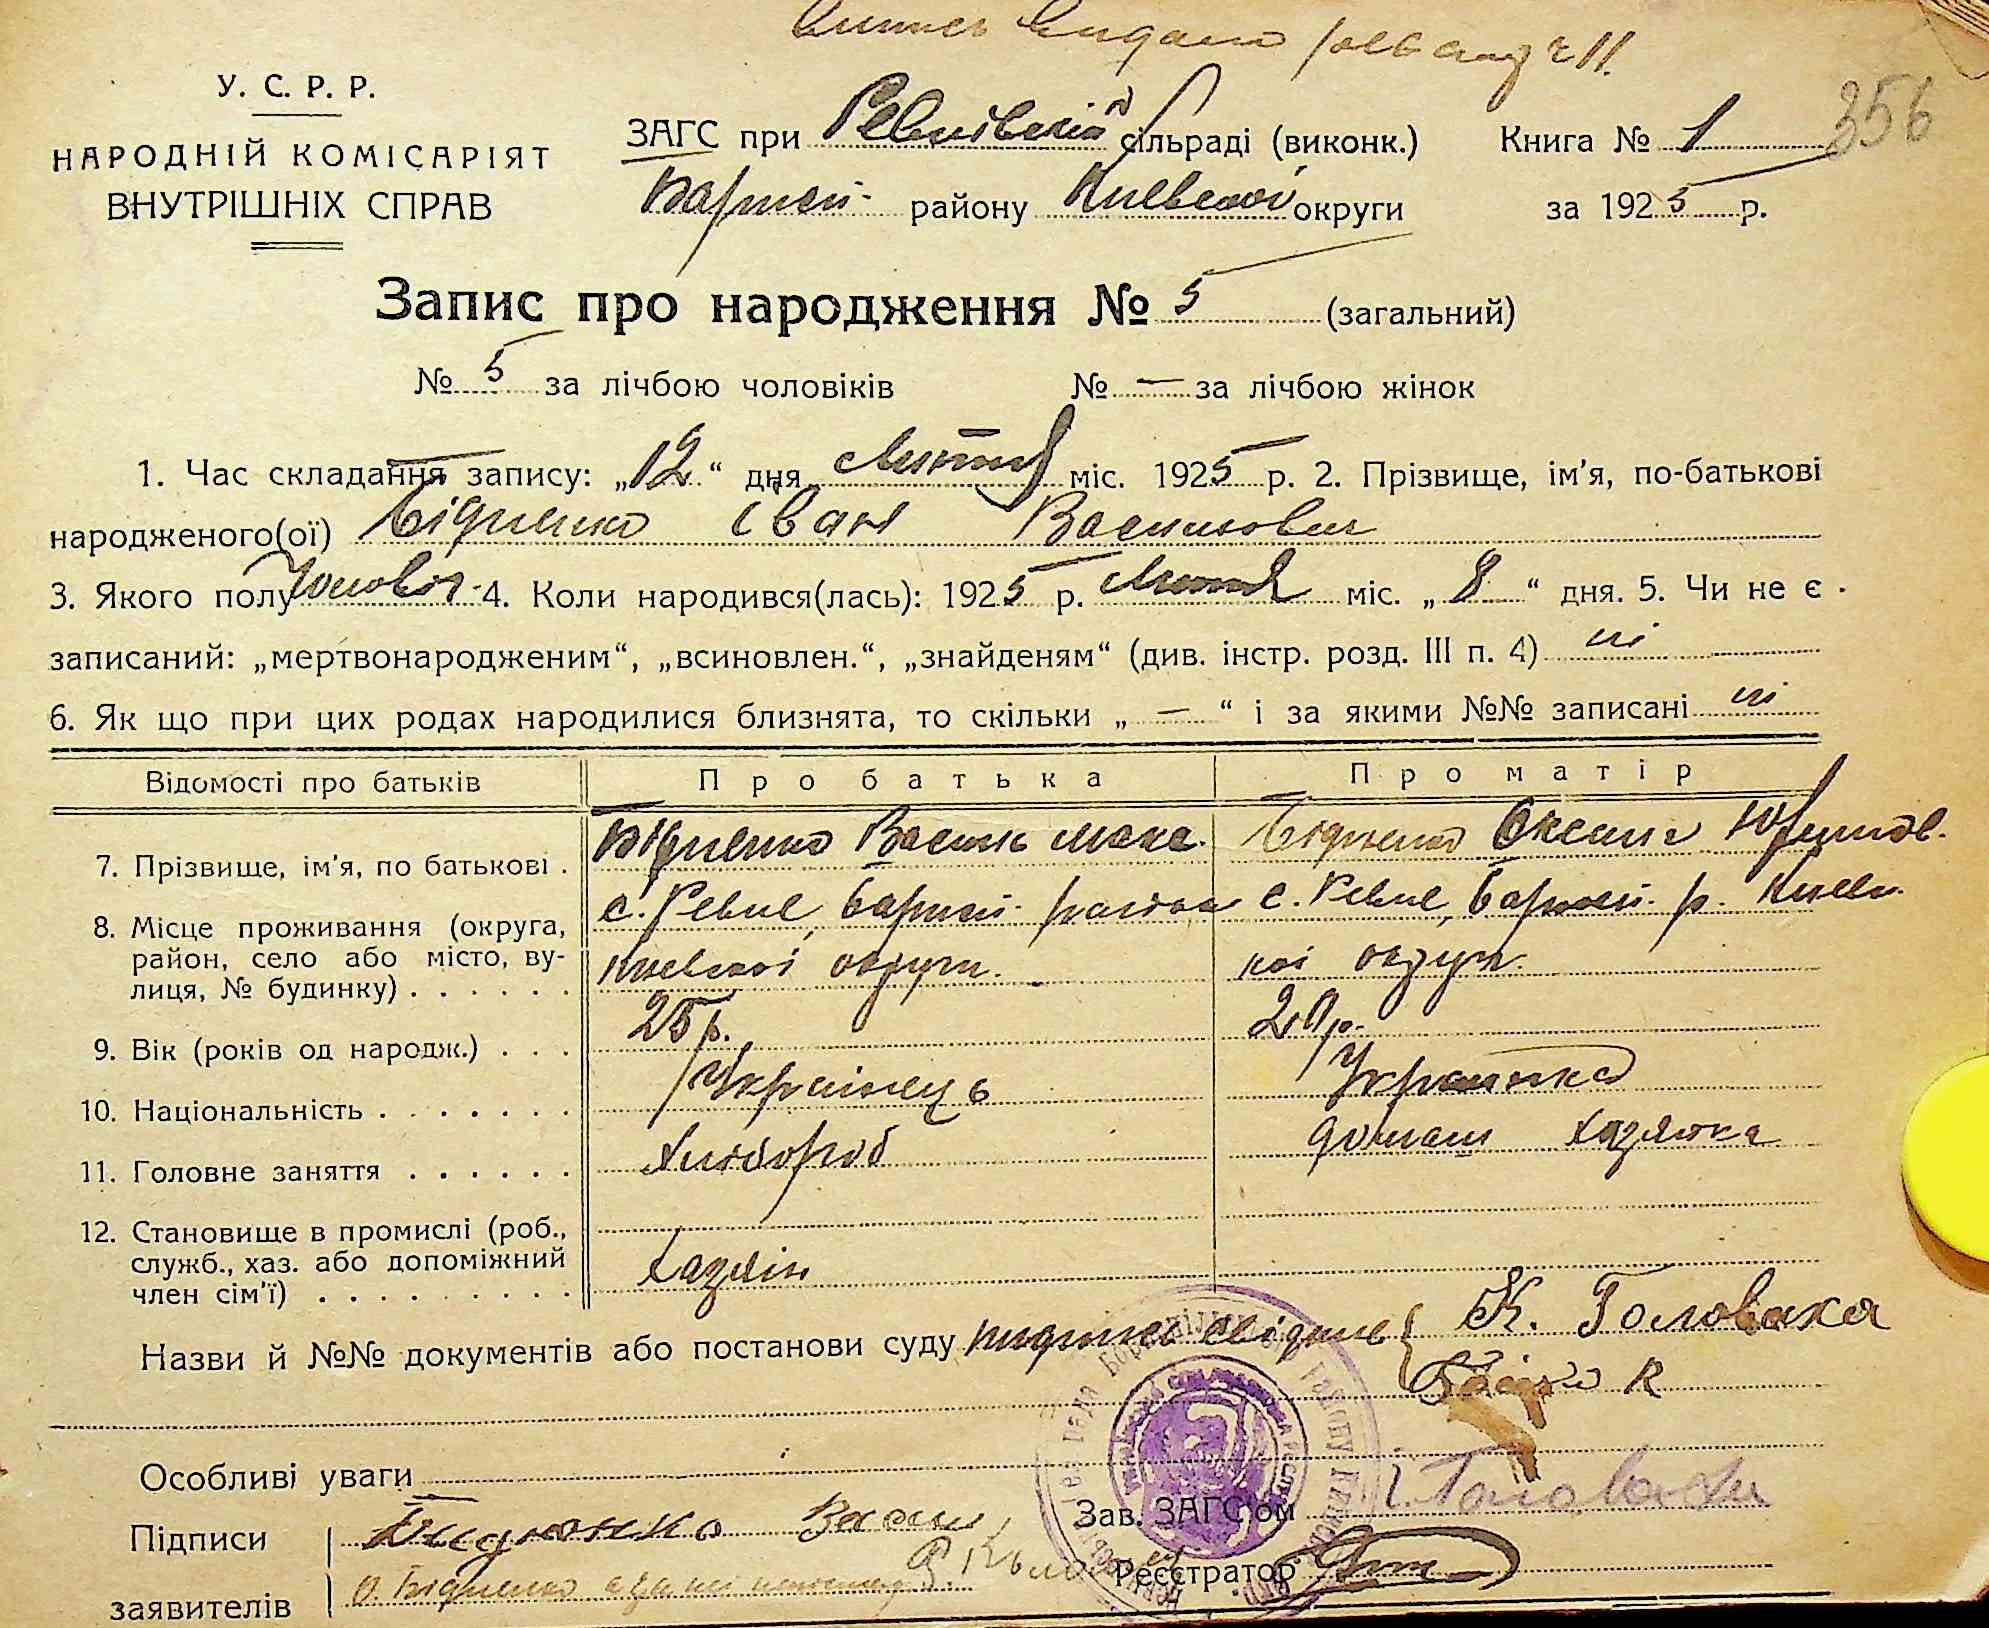 У. С. Р. Р.
НАРОДНІЙ КОМІСАРІЯТ
ВНУТРІШНІХ СПРАВ
ЗАГС при Ревнівській сільраді (виконк.)
Баришей району Київської округи
Книга № 1
за 1925 р.
356
Запис про народження № 5 (загальний)
№ 5 за лічбою чоловіків № — за лічбою жінок
1. Час складання запису: „12“ дня Лютня міс. 1925 р. 2. Прізвище, ім'я, по-батькові
народженого(ої) Бідненко Іван Васильович
3. Якого полу Чоловіч. 4. Коли народився(лась): 1925 р. Лютня міс. „8“ дня. 5. Чи не є
записаний: „мертвонародженим“, „всиновлен.“, „знайденям“ (див. інстр. розд. III п. 4) ні
6. Як що при цих родах народилися близнята, то скільки „ — “ і за якими №№ записані ні
Відомості про батьків Про батька Про матір
7. Прізвище, ім'я, по батькові . Бідненко Василь Бідненко Оксана
8. Місце проживання (округа, район, село або місто, вулиця, № будинку) . . . . . . с. Ревне, район
Київської округи.
с. Ревне, р. Київ
кої округи.
9. Вік (років од народж.) . . . 25 р. 20 р.
10. Національність . . . . . . . Українець Українка
11. Головне заняття . . . . . . Хлібороб домаш хазяйка
12. Становище в промислі (роб.,
служб., хаз. або допоміжний
член сім'ї) . . . . . . . . . Хазяїн
Назви й №№ документів або постанови суду підпись свідків { К. Головаха
Особливі уваги
Підписи
заявителів
Зав. ЗАГС'ом Головаха
Реєстратор